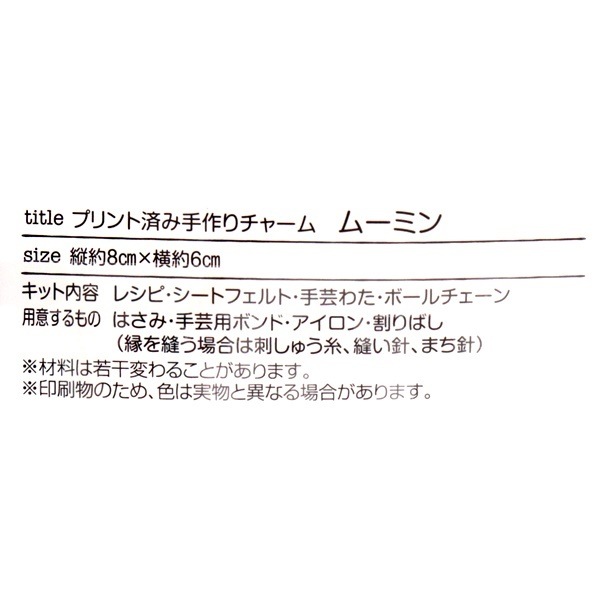 title プリント済み手作りチャーム ムーミン
size 縦約8㎝×横約6㎝
キット内容 レシピ・シートフェルト・手芸わた・ボールチェーン
用意するもの はさみ・手芸用ボンド・アイロン・割りばし
(縁を縫う場合は刺しゅう糸、縫い針、まち針)
※材料は若干変わることがあります。
※印刷物のため、色は実物と異なる場合があります。